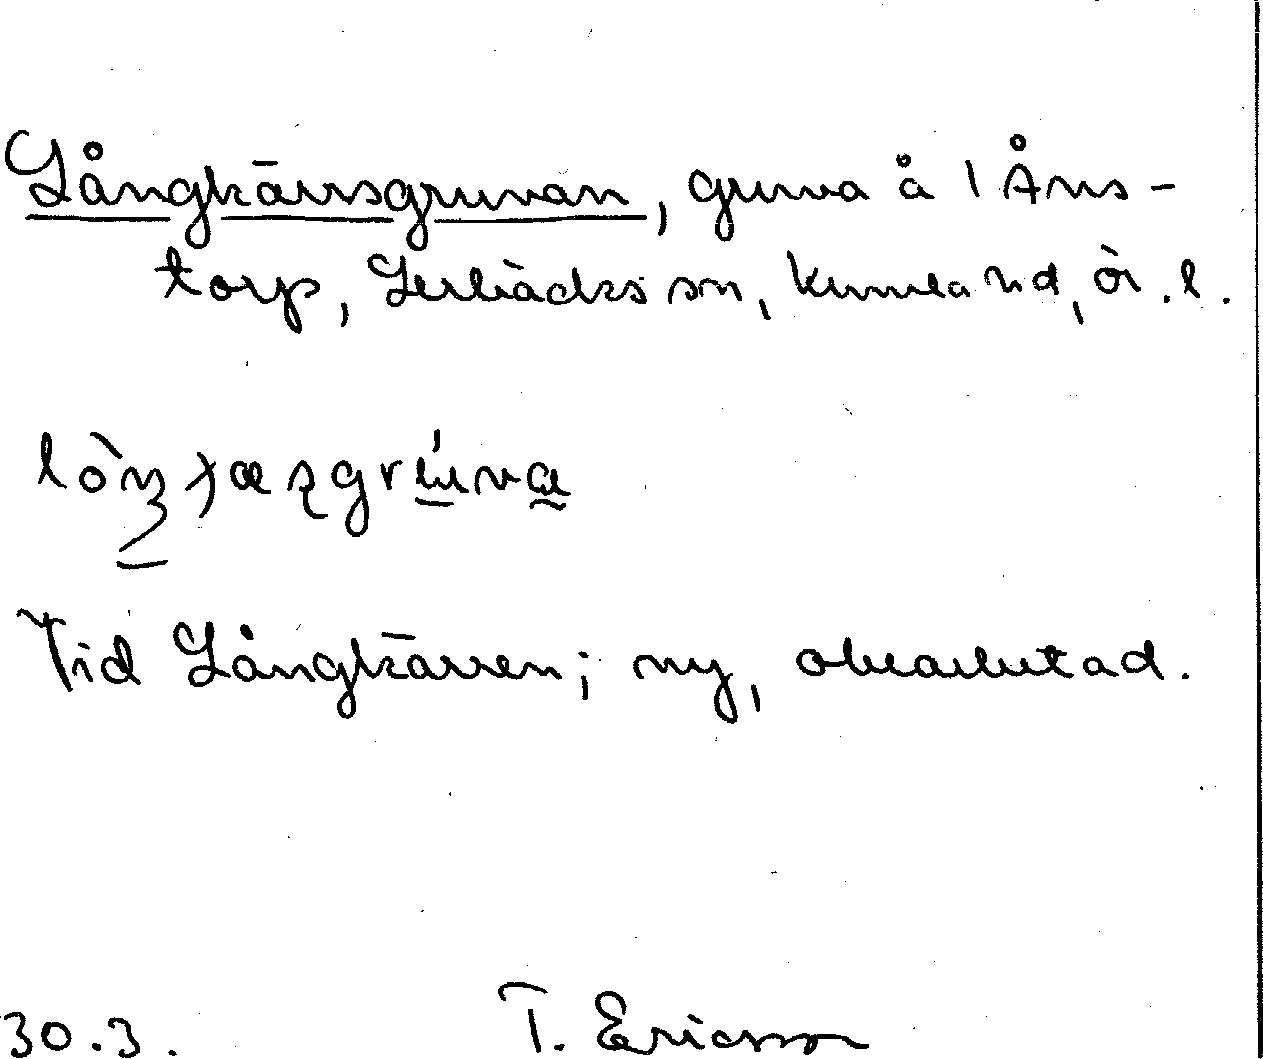 Långkärrsgruvan, gruva å 1 Åns-
torp, Lerbäcks sn, Kumla hd, Ör. l.
Vid Långkärren; ny, obearbetad.
30.3. T. Ericsson